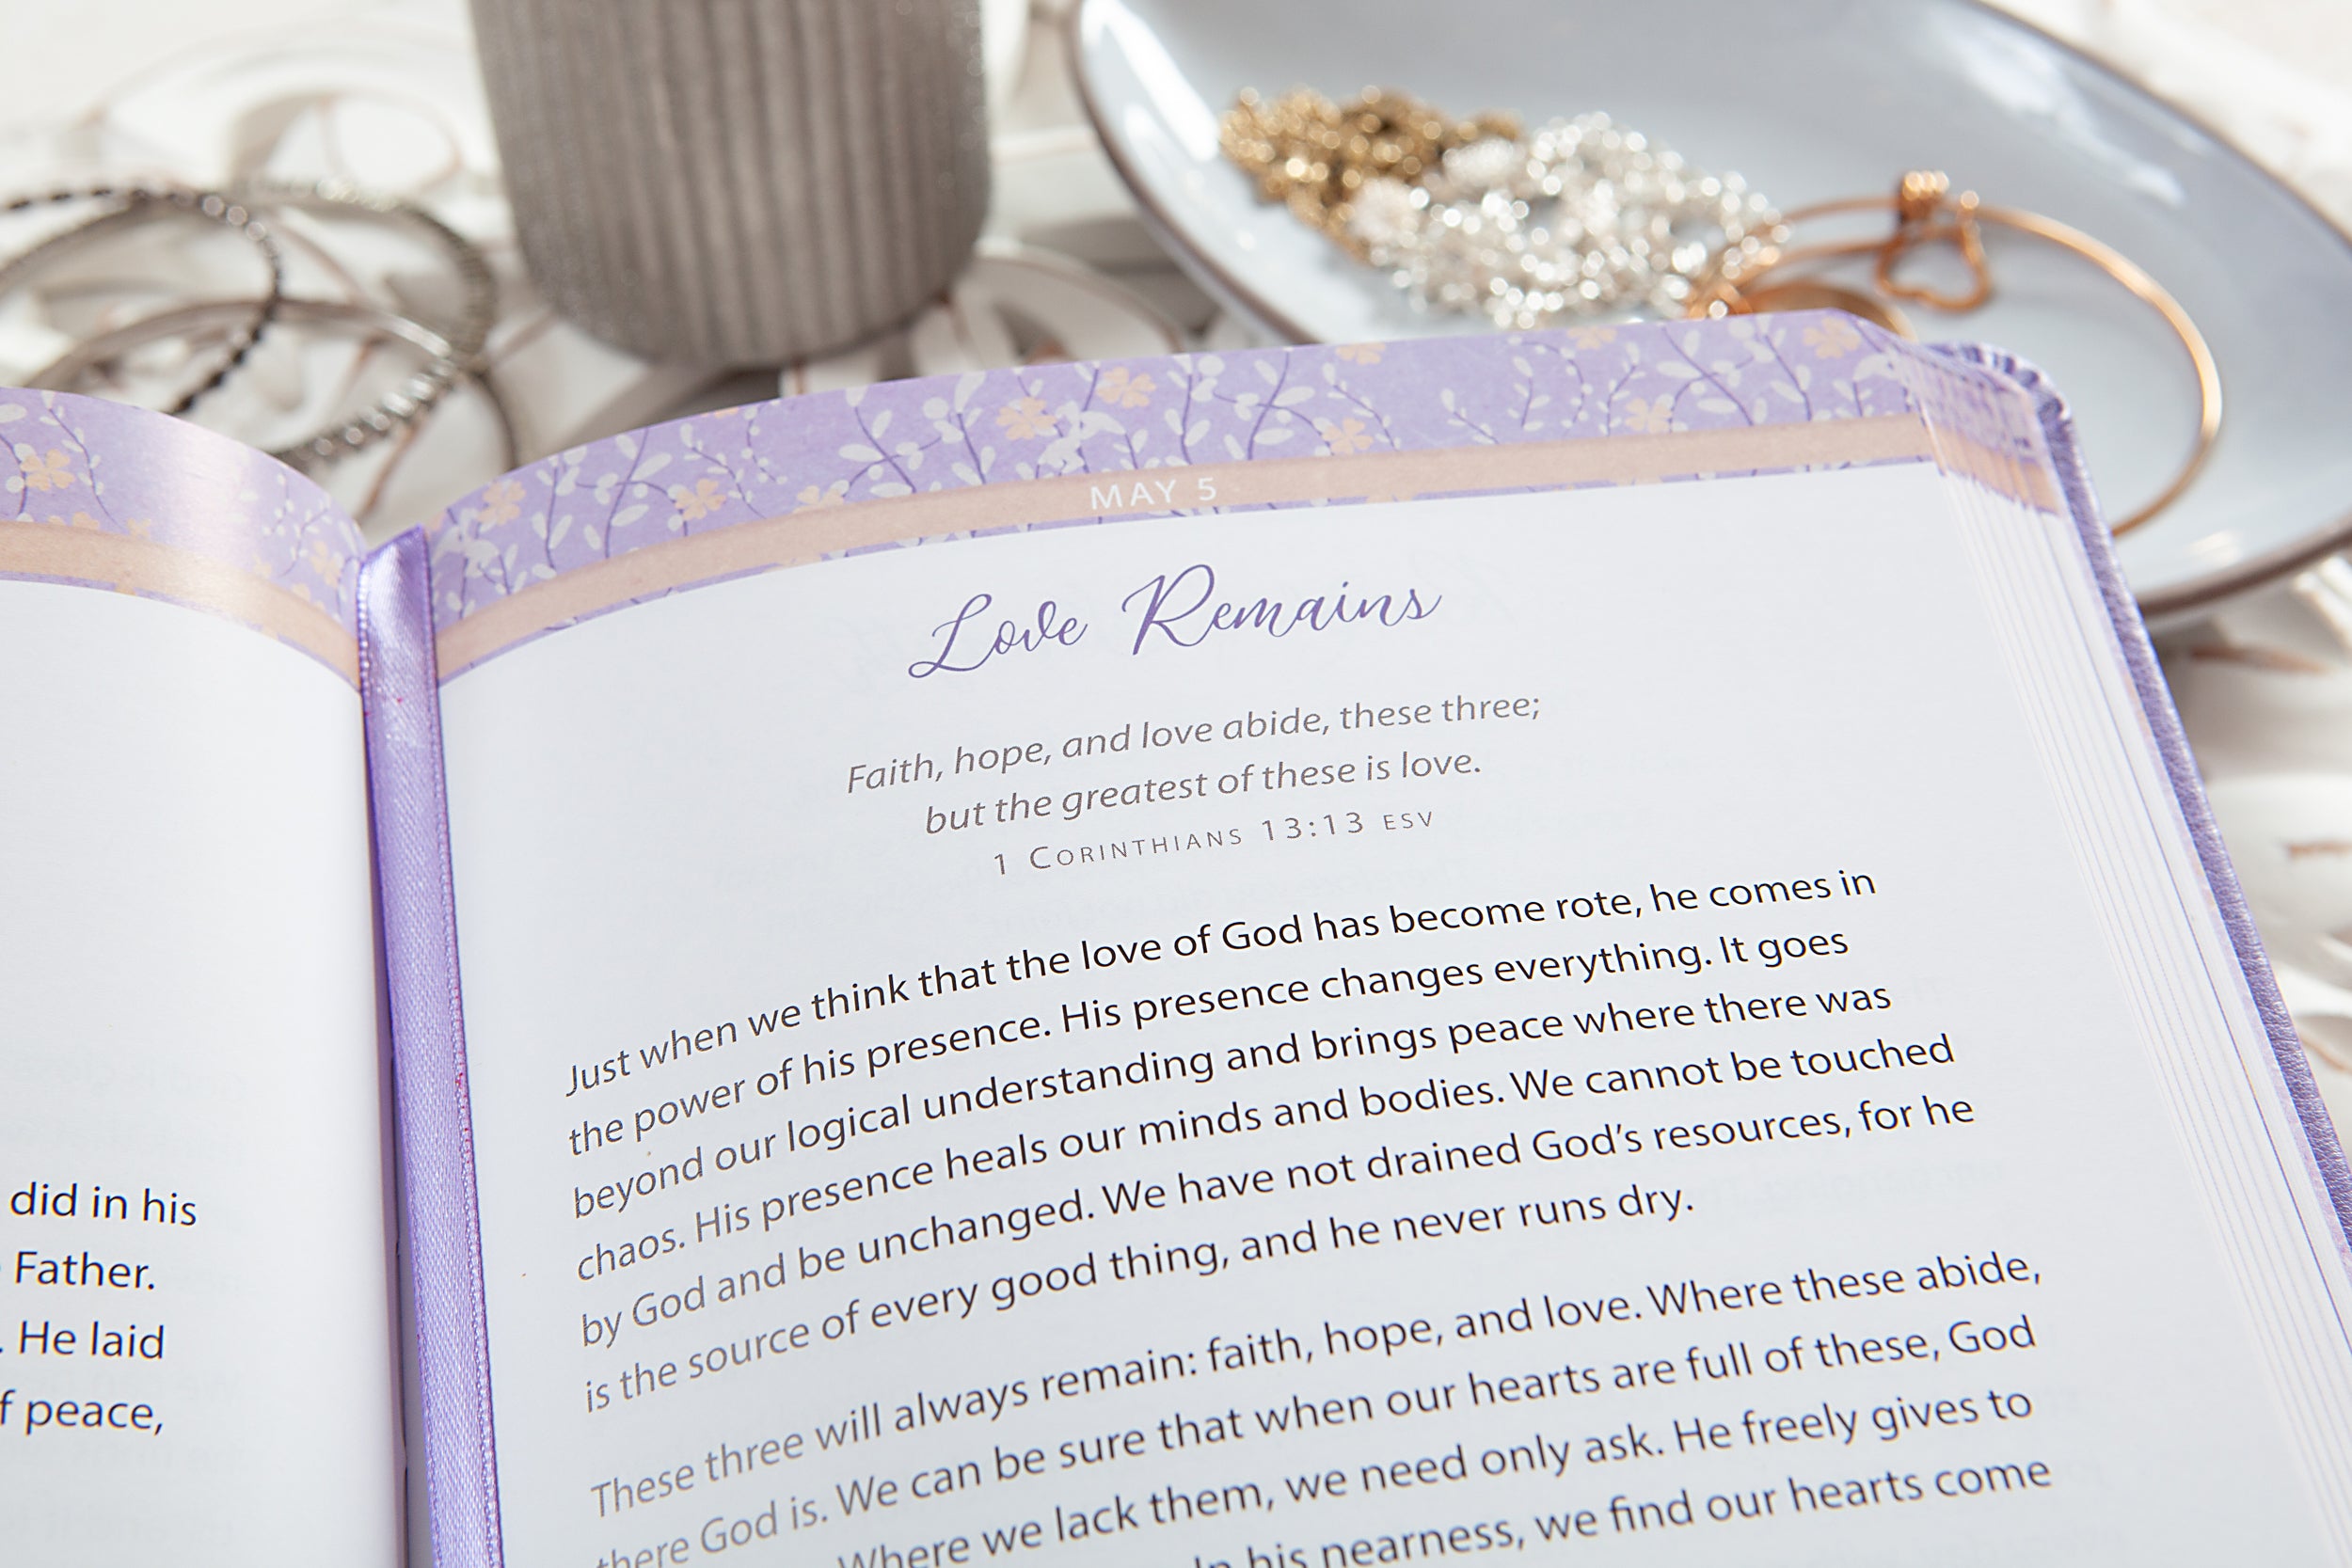 did in his
Father.
. He laid
f peace,
MAY 5
Love Remains
Faith, hope, and love abide, these three;
but the greatest of these is love.
1 CORINTHIANS 13:13 ESV
Just when we think that the love of God has become rote, he comes in
the power of his presence. His presence changes everything. It goes
beyond our logical understanding and brings peace where there was
chaos. His presence heals our minds and bodies. We cannot be touched
by God and be unchanged. We have not drained God's resources, for he
is the source of every good thing, and he never runs dry.
These three will always remain: faith, hope, and love. Where these abide,
there God is. We can be sure that when our hearts are full of these, God
Where we lack them, we need only ask. He freely gives to
In his nearness, we find our hearts come